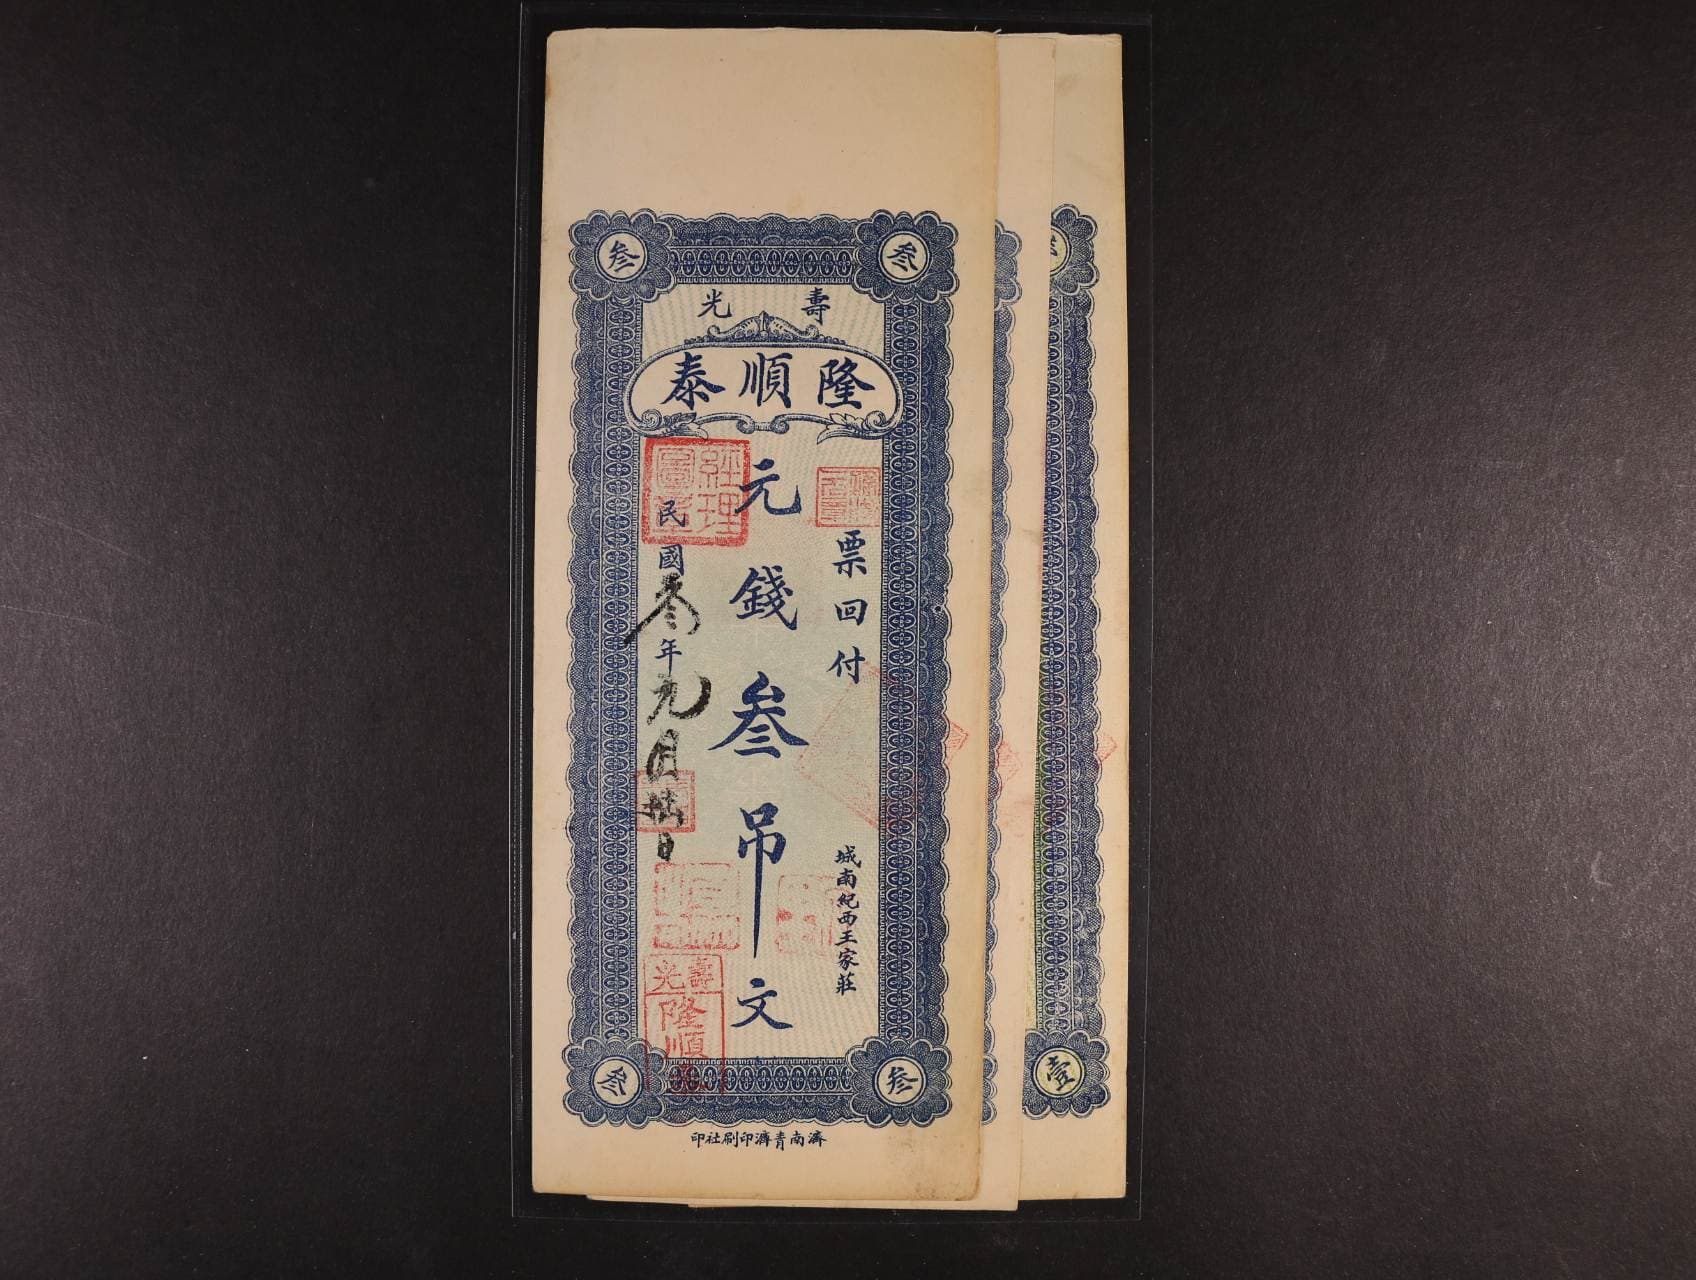 叁 叁
壽光
隆順泰
票回付
城南紀西王家莊
元錢叁吊文
民國叁年元月廿日
經理
壽光
隆順
叁 叁
濟南青濟印刷社印
壹